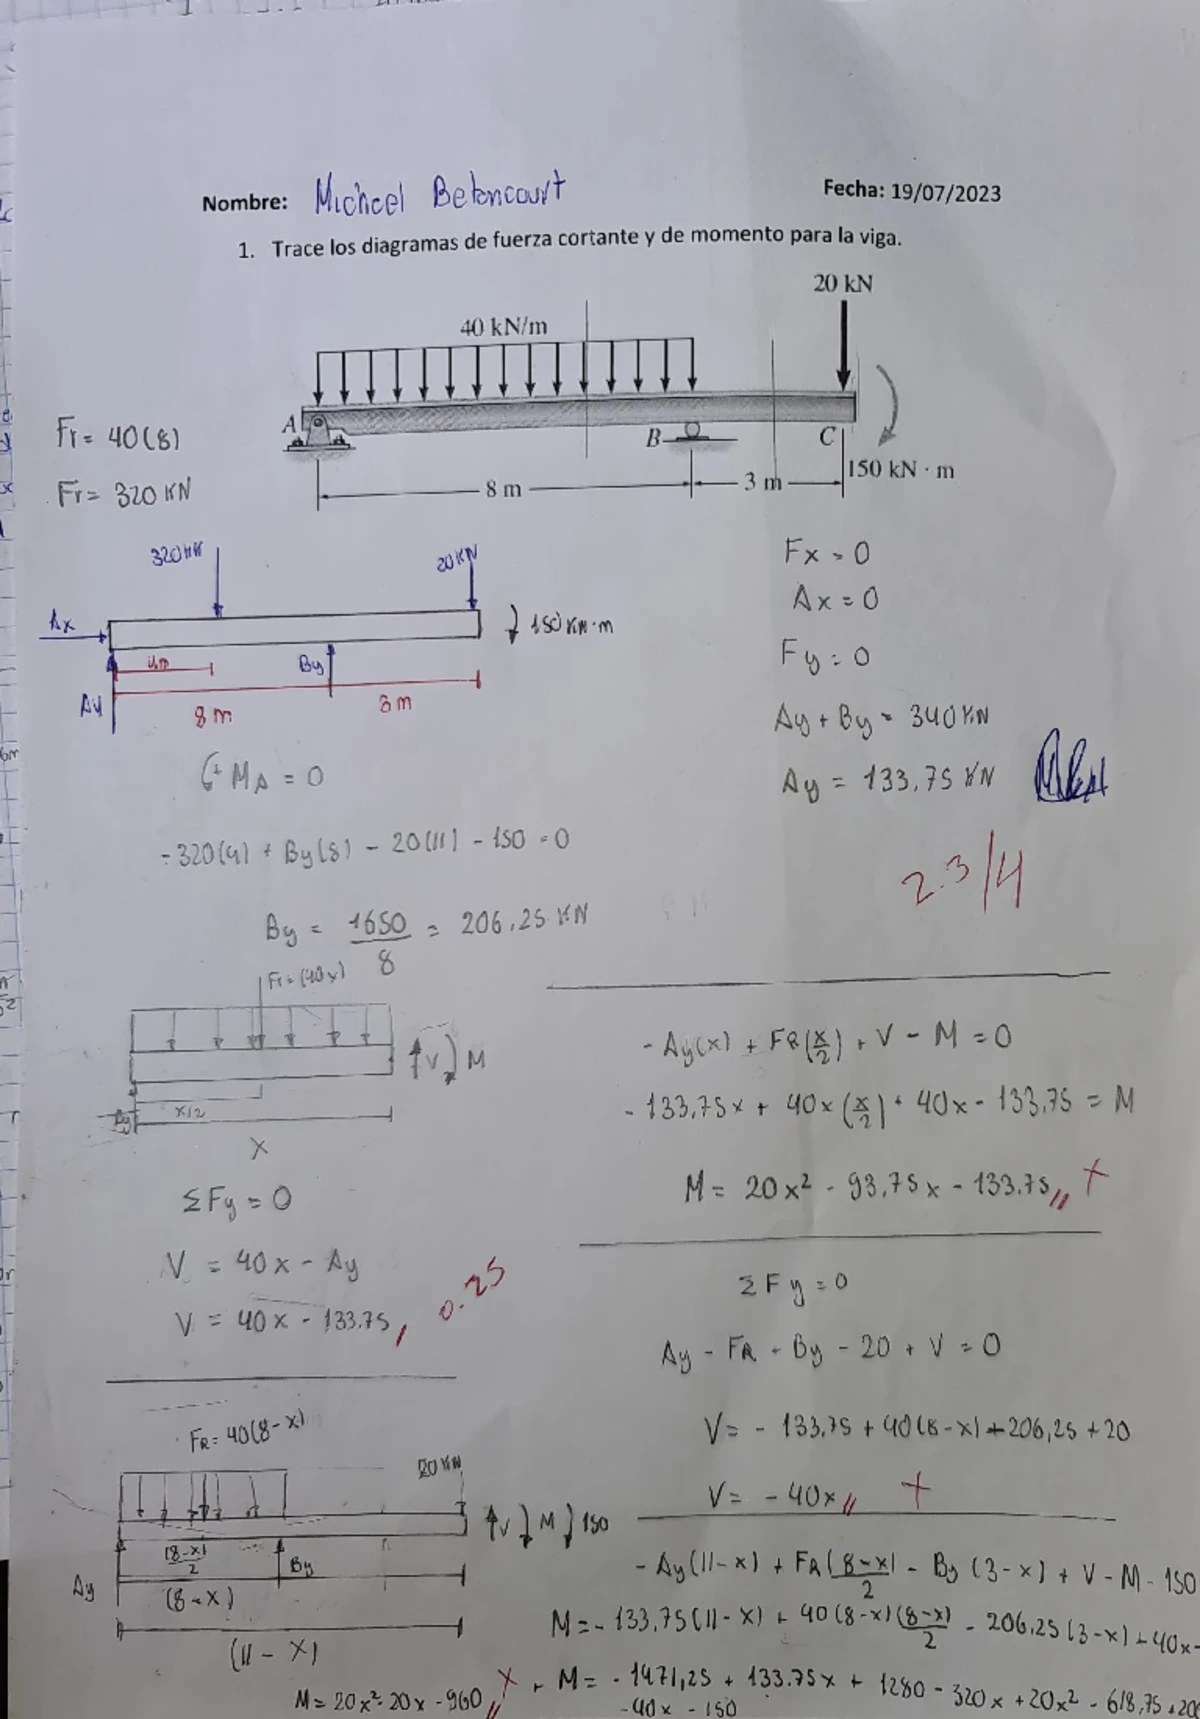 Nombre: Michael Betancourt
Fecha: 19/07/2023
1. Trace los diagramas de fuerza cortante y de momento para la viga.
20 kN
40 kN/m
A
B
C
150 kN · m
8 m
3 m
Fr = 40(8)
Fr = 320 KN
320 KN
20 KN
Ax
150 KN·m
4m
By
Ay
8 m
3 m
Fx = 0
Ax = 0
Fy = 0
Ay + By = 340 KN
Ay = 133,75 KN
2.3/4
(+ MA = 0
-320(4) + By(8) - 20(11) - 150 = 0
By = 1650/8 = 206,25 KN
Fr = (40x)
V M
x/2
Ay
X
ΣFy = 0
V = 40x - Ay
V = 40x - 133.75
0.25
- Ay(x) + FR(x/2) + V - M = 0
- 133,75x + 40x(x/2) + 40x - 133,75 = M
M = 20x² - 93,75x - 133.75
ΣFy = 0
Ay - FR - By - 20 + V = 0
V = - 133,75 + 40(8-x) + 206,25 + 20
V = - 40x
FR = 40(8-x)
20 KN
V M 150
(8-x)/2
By
Ay
(8-x)
(11 - x)
- Ay(11-x) + FR(8-x)/2 - By (3-x) + V - M - 150
M = - 133,75(11-x) + 40(8-x)(8-x)/2 - 206,25(3-x) + 40x -
M = - 1471,25 + 133.75x + 1280 - 320x + 20x² - 618,75 + 206
- 40x - 150
M = 20x² - 20x - 960